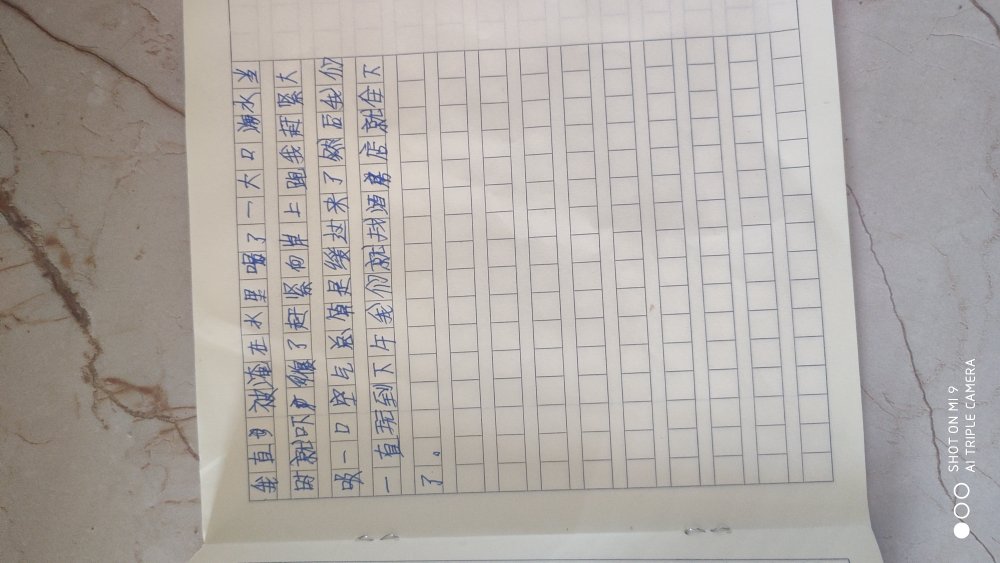 我直接被淹在水里喝了一大口海水当
时就吓傻了赶紧向岸上跑我赶紧大
吸一口空气总算是缓过来了然后我们
一直玩到下午我们就找酒店就住下
了。
SHOT ON MI 9
AI TRIPLE CAMERA